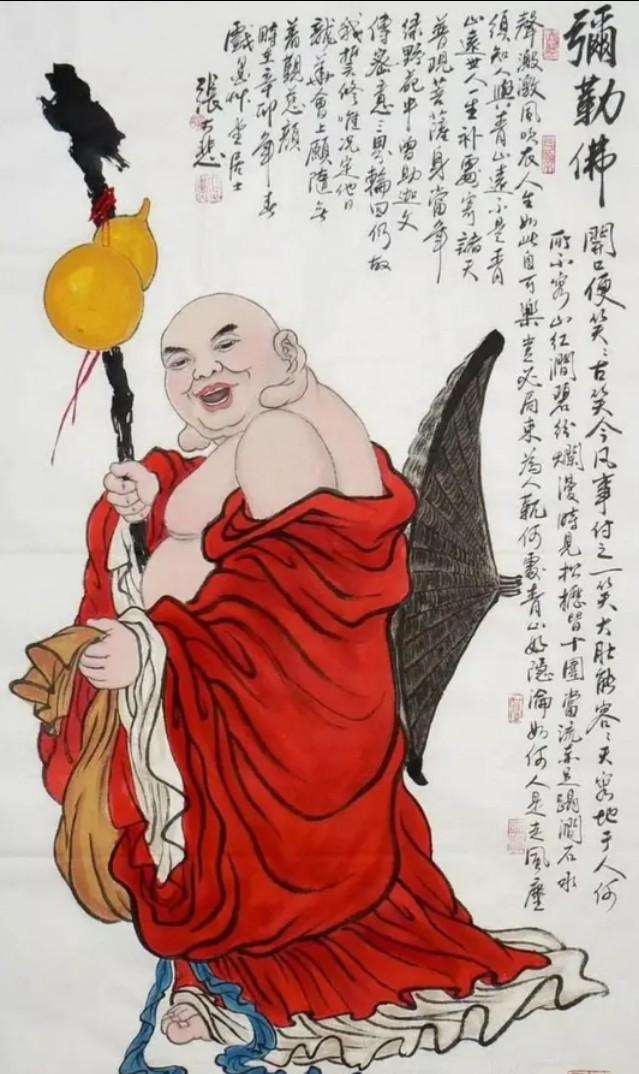 彌勒佛
開口便笑〻古笑今凡事付之一笑大肚能容〻天容地于人何
所不容山紅澗碧紛爛漫時見松櫪皆十圍當流赤足蹋澗石水
聲激激風吹衣人生如此自可樂豈必局束為人鞿何處青山好隱淪如何人是走風塵
須知人與青山遠不是青
山遠世人一生補處寄諸天
普現菩薩身當年
綠野苑中曾助迦文
傳密意三界輪回仍故
我誓修唯況定他日
龍華會上願隨
着觀慈顏
時在辛卯年春
戲墨艸堂居士
張大悲